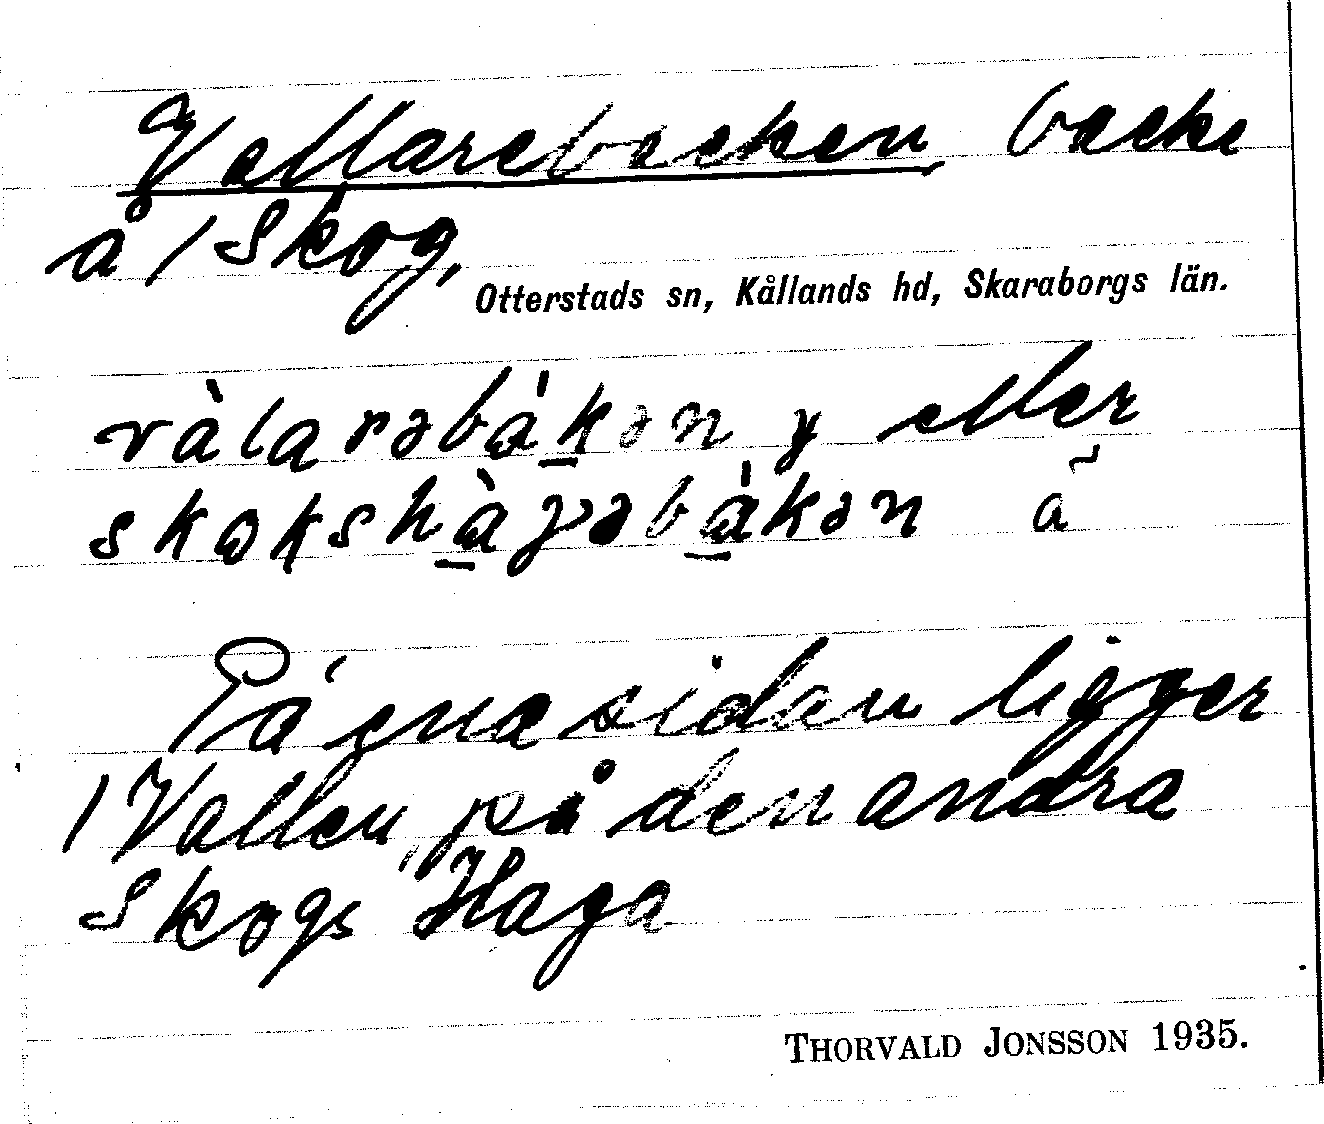 Vallarebacken backe
å / Skog,
Otterstads sn, Kållands hd, Skaraborgs län.
vàlarəbákən y eller
skokshàgəbákən ã
På ena sidan ligger
/ Vallen, på den andra
Skogs Haga
THORVALD JONSSON 1935.